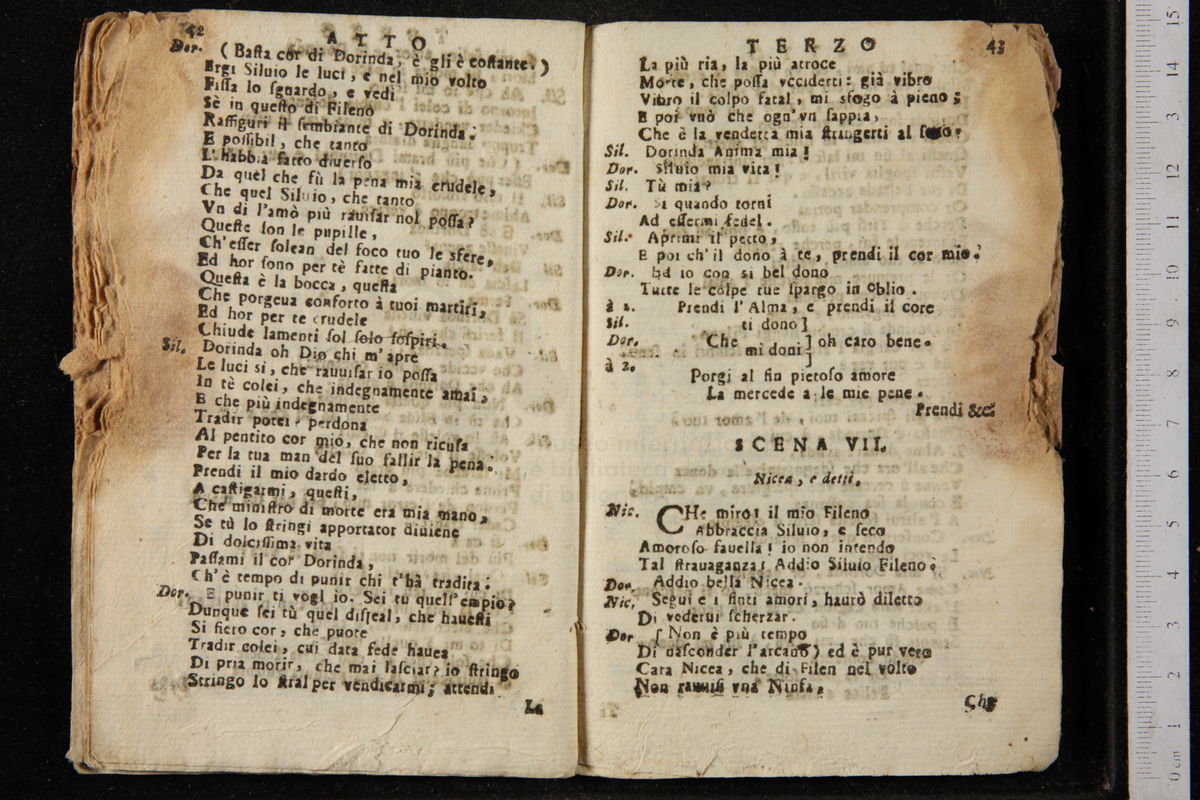 42
ATTO
Dor. (Baſta cor di Dorinda, è gli è coſtante.)
Ergi Siluio le luci, e nel mio volto
Fiſſa lo ſguardo, e vedi
Sè in queſto di Fileno
Raffiguri il ſembiante di Dorinda.
E poſſibil, che tanto
L'habbia fatto diuerſo
Da quel che fù la pena mia crudele,
Che quel Siluio, che tanto
Vn di l'amò più rauiſar nol poſſa?
Queſte ſon le pupille,
Ch'eſſer ſolean del foco tuo le sfere,
Ed hor ſono per tè fatte di pianto.
Queſta è la bocca, queſta
Che porgeua conforto à tuoi martiri,
Ed hor per te crudele
Chiude lamenti ſol ſolo ſoſpiri.
Sil. Dorinda oh Dio chi m'apre
Le luci si, che rauuiſar io poſſa
In tè colei, che indegnamente amai,
E che più indegnamente
Tradir potei? perdona
Al pentito cor mio, che non ricuſa
Per la tua man del ſuo fallir la pena.
Prendi il mio dardo eletto,
A caſtigarmi, queſti,
Che miniſtro di morte era mia mano,
Se tù lo ſtringi apportator diuiene
Di dolciſſima vita
Paſſami il cor Dorinda,
Ch'è tempo di punir chi t'hà tradita.
Dor. E punir ti vogl io. Sei tu quell'empio?
Dunque ſei tù quel diſleal, che haueſti
Si fiero cor, che puote
Tradir colei, cui data fede hauea
Di pria morir, che mai laſciar? io ſtringo
Stringo lo ſtral per vendicarmi; attendi
La
TERZO
43
La più ria, la più atroce
Morte, che poſſa vcciderti: già vibro
Vibro il colpo fatal, mi sfogo à pieno;
E poi vuò che ogn'vn ſappia,
Che è la vendetta mia ſtringerti al ſeno.
Sil. Dorinda Anima mia!
Dor. Siluio mia vita!
Sil. Tù mia?
Dor. Si quando torni
Ad eſſermi fedel.
Sil. Aprimi il petto,
E poi ch'il dono à te, prendi il cor mio.
Dor. Ed io con si bel dono
Tutte le colpe tue ſpargo in oblio.
à 2. Prendi l'Alma, e prendi il core
Sil. ti dono]
Dor. Che ] oh caro bene.
mi doni]
à 2.
Porgi al fin pietoſo amore
La mercede a le mie pene.
Prendi &c.
SCENA VII.
Nicea, e detti.
Nic. CHe miro! il mio Fileno
Abbraccia Siluio, e ſeco
Amoroſo fauella! io non intendo
Tal ſtrauaganza! Addio Siluio Fileno.
Dor. Addio bella Nicea.
Nic. Segui e i finti amori, haurò diletto
Di vederui ſcherzar.
Dor (Non è più tempo
Di naſconder l'arcano) ed è pur vero
Cara Nicea, che di Filen nel volto
Non rauuiſi vna Ninfa,
Che